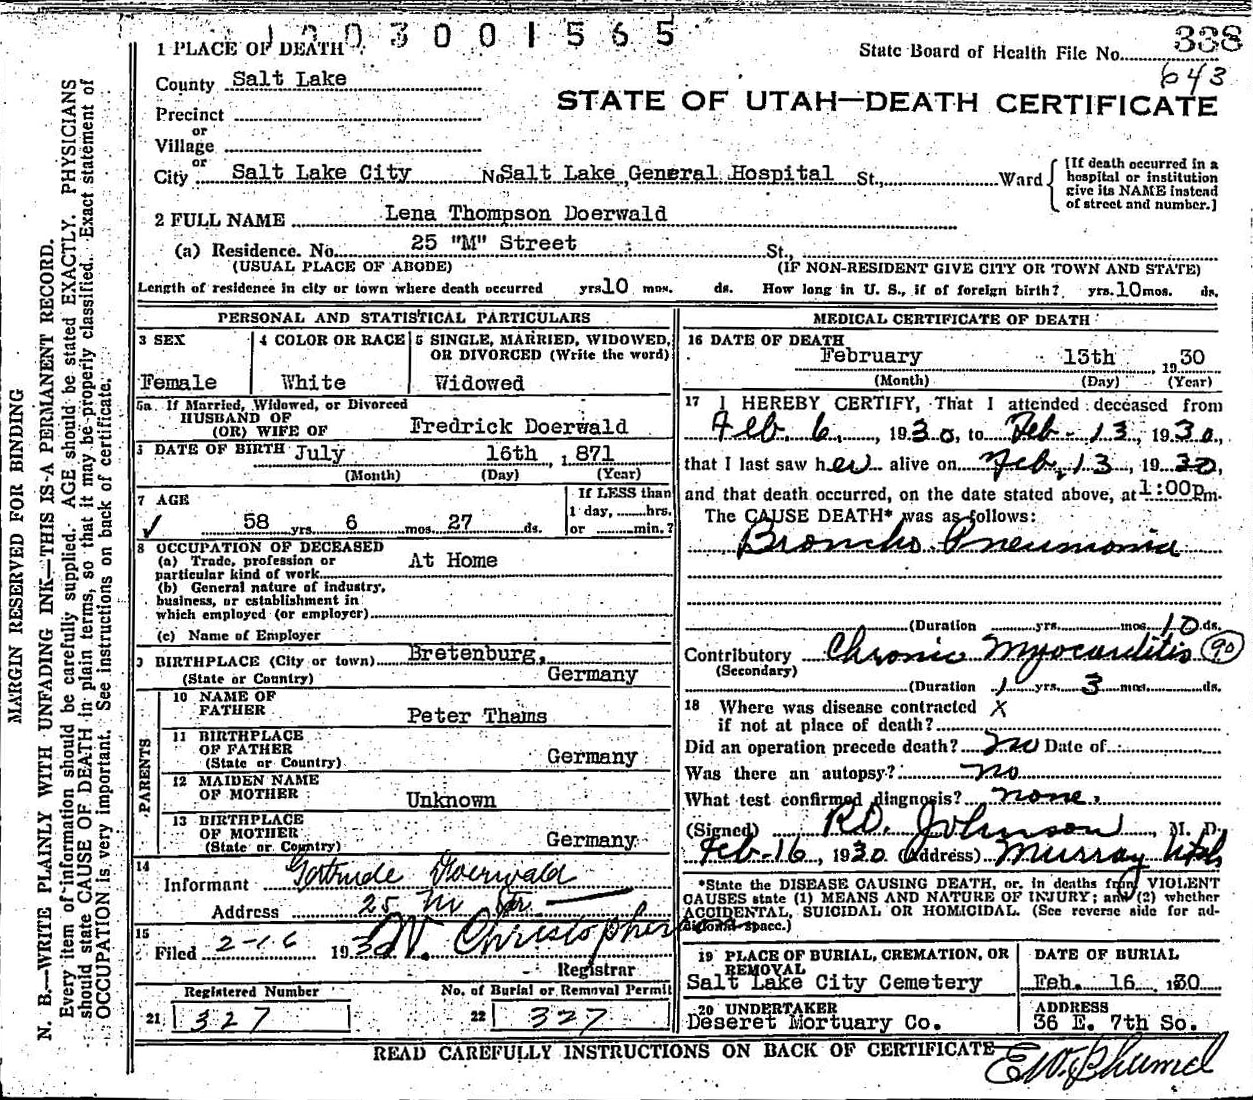 1003001565
338
State Board of Health File No.
643
1 PLACE OF DEATH
County Salt Lake
STATE OF UTAH—DEATH CERTIFICATE
Precinct
or
Village
or
City Salt Lake City No Salt Lake General Hospital St., Ward
[If death occurred in a hospital or institution give its NAME instead of street and number.]
2 FULL NAME Lena Thompson Doerwald
(a) Residence. No. 25 "M" Street St.,
(USUAL PLACE OF ABODE) (IF NON-RESIDENT GIVE CITY OR TOWN AND STATE)
Length of residence in city or town where death occurred yrs 10 mos. ds. How long in U. S., if of foreign birth? yrs. 10 mos. ds.
PERSONAL AND STATISTICAL PARTICULARS
3 SEX 4 COLOR OR RACE 5 SINGLE, MARRIED, WIDOWED, OR DIVORCED (Write the word)
Female White Widowed
5a If Married, Widowed, or Divorced
HUSBAND OF
(OR) WIFE OF Fredrick Doerwald
DATE OF BIRTH July 16th, 1871
(Month) (Day) (Year)
7 AGE
58 yrs. 6 mos. 27 ds.
If LESS than
1 day, hrs.
or min.?
8 OCCUPATION OF DECEASED
(a) Trade, profession or
particular kind of work At Home
(b) General nature of industry,
business, or establishment in
which employed (or employer)
(c) Name of Employer
9 BIRTHPLACE (City or town) Bretenburg,
(State or Country) Germany
PARENTS
10 NAME OF
FATHER Peter Thams
11 BIRTHPLACE
OF FATHER
(State or Country) Germany
12 MAIDEN NAME
OF MOTHER Unknown
13 BIRTHPLACE
OF MOTHER
(State or Country) Germany
14
Informant Gertrude Doerwald
Address 25 M St.
15
Filed 2-16 1930 W. Christopherson
Registrar
Registered Number No. of Burial or Removal Permit
21 327 22 327
MEDICAL CERTIFICATE OF DEATH
16 DATE OF DEATH
February 13th 1930
(Month) (Day) (Year)
17 I HEREBY CERTIFY, That I attended deceased from
Feb. 6, 1930, to Feb-13, 1930,
that I last saw her alive on Feb, 13, 1930,
and that death occurred, on the date stated above, at 1:00pm.
The CAUSE DEATH* was as follows:
Broncho Pneumonia
(Duration yrs. mos. 10 ds.
Contributory Chronic Myocarditis 90
(Secondary)
(Duration 1 yrs. 3 mos. ds.
18 Where was disease contracted X
if not at place of death?
Did an operation precede death? no Date of
Was there an autopsy? no
What test confirmed diagnosis? none.
(Signed) R.D. Johnson, M. D.
Feb-16, 1930 (Address) Murray Utah
*State the DISEASE CAUSING DEATH, or, in deaths from VIOLENT
CAUSES state (1) MEANS AND NATURE OF INJURY; and (2) whether
ACCIDENTAL, SUICIDAL OR HOMICIDAL. (See reverse side for ad-
ditional space.)
19 PLACE OF BURIAL, CREMATION, OR REMOVAL DATE OF BURIAL
Salt Lake City Cemetery Feb. 16 1930
20 UNDERTAKER ADDRESS
Deseret Mortuary Co. 36 E. 7th So.
READ CAREFULLY INSTRUCTIONS ON BACK OF CERTIFICATE
MARGIN RESERVED FOR BINDING
N. B.—WRITE PLAINLY WITH UNFADING INK—THIS IS A PERMANENT RECORD.
Every item of information should be carefully supplied. AGE should be stated EXACTLY. PHYSICIANS
should state CAUSE OF DEATH in plain terms, so that it may be properly classified. Exact statement of
OCCUPATION is very important. See instructions on back of certificate.